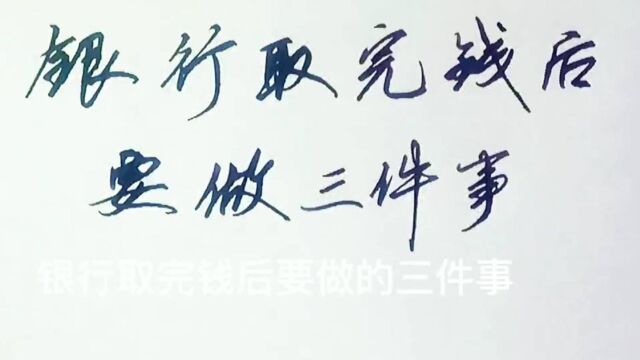 银行取完钱后
要做三件事
银行取完钱后要做的三件事